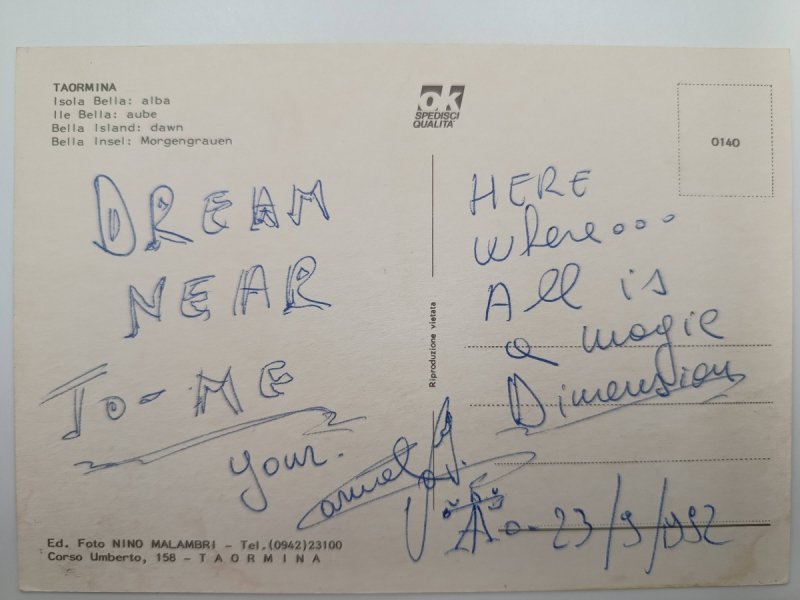 TAORMINA
Isola Bella: alba
Ile Bella: aube
Bella Island: dawn
Bella Insel: Morgengrauen
ok
SPEDISCI
QUALITÀ
0140
DREAM
NEAR
TO-ME
your.
HERE
where...
All is
a magic
Dimension
23/9/1992
Riproduzione vietata
Ed. Foto NINO MALAMBRI - Tel.(0942)23100
Corso Umberto, 158 - TAORMINA